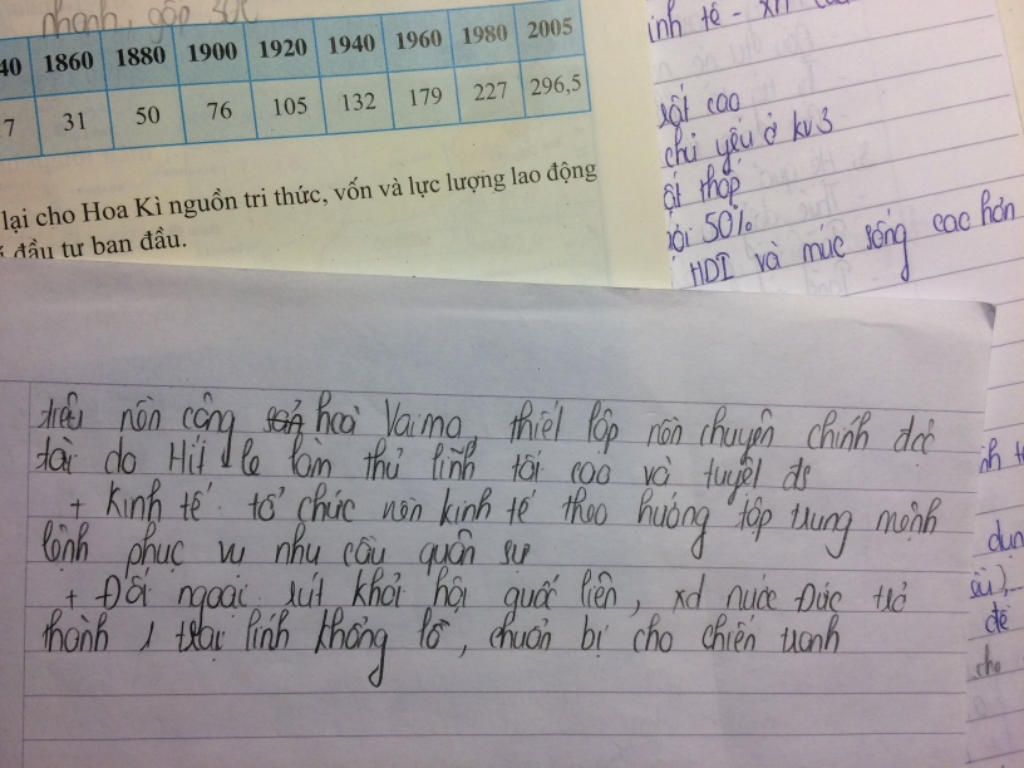 nhanh, gấp
40 1860 1880 1900 1920 1940 1960 1980 2005
7 31 50 76 105 132 179 227 296,5
lại cho Hoa Kì nguồn tri thức, vốn và lực lượng lao động
đầu tư ban đầu.
inh tế - XH
rất cao
chủ yếu ở kv3
ất thấp
50%
HDI và mức sống cao hơn
nền cộng hoà Vaima, thiết lập nền chuyên chính độc
tài do Hit le làm thủ lĩnh tối cao và tuyệt đs
+ Kinh tế: tổ chức nền kinh tế theo hướng tập trung mệnh
lệnh phục vụ nhu cầu quân sự
+ Đối ngoại: rút khỏi hội quốc liên, xd nước Đức trở
thành 1 trại lính khổng lồ, chuẩn bị cho chiến tranh
dụn
để
cho